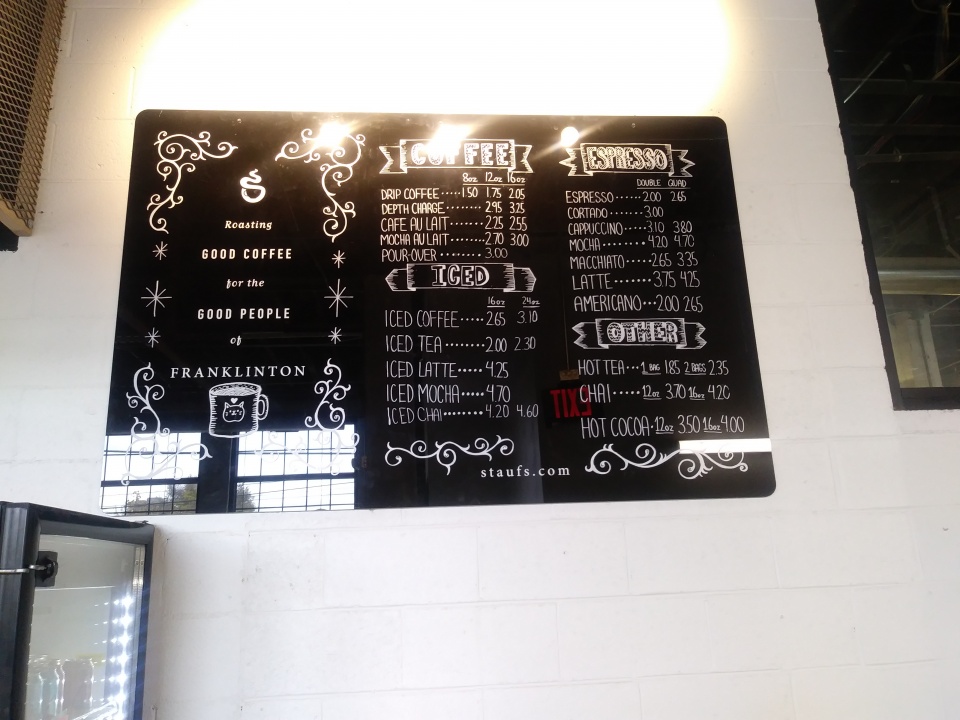 Roasting
GOOD COFFEE
for the
GOOD PEOPLE
of
FRANKLINTON
COFFEE
8oz 12oz 16oz
DRIP COFFEE·····1.50 1.75 2.05
DEPTH CHARGE····· 2.95 3.25
CAFE AU LAIT······ 2.25 2.55
MOCHA AU LAIT····· 2.70 3.00
POUR-OVER······· 3.00
ICED
16oz 24oz
ICED COFFEE····· 2.65 3.10
ICED TEA······· 2.00 2.30
ICED LATTE····· 4.25
ICED MOCHA····· 4.70
ICED CHAI········ 4.20 4.60
ESPRESSO
DOUBLE QUAD
ESPRESSO······ 2.00 2.65
CORTADO······ 3.00
CAPPUCCINO····· 3.10 3.80
MOCHA········ 4.20 4.70
MACCHIATO····· 2.65 3.35
LATTE······· 3.75 4.25
AMERICANO··· 2.00 2.65
OTHER
HOT TEA···1 BAG 1.85 2 BAGS 2.35
CHAI·····12oz 3.70 16oz 4.20
HOT COCOA·12oz 3.50 16oz 4.00
staufs.com
EXIT